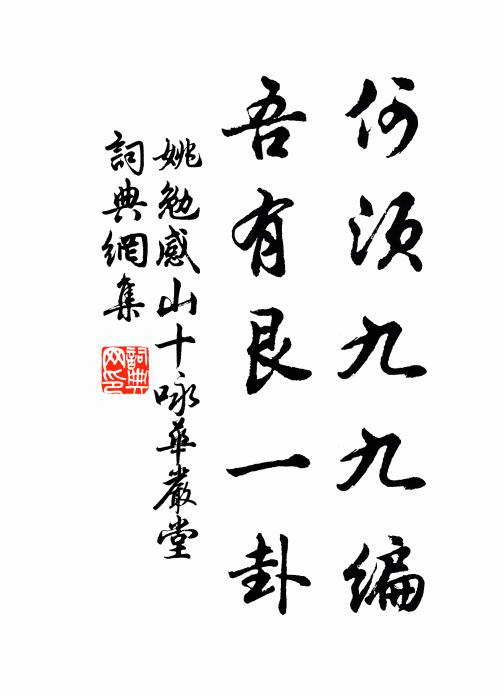 何須九九編
吾有艮一卦
姚勉感山十咏華嚴堂
詞典網集
詞典網印